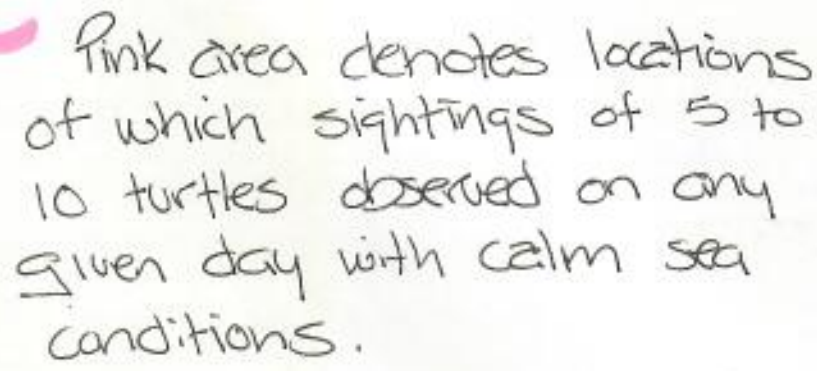 Pink area denotes locations
of which sightings of 5 to
10 turtles observed on any
given day with calm sea
conditions.